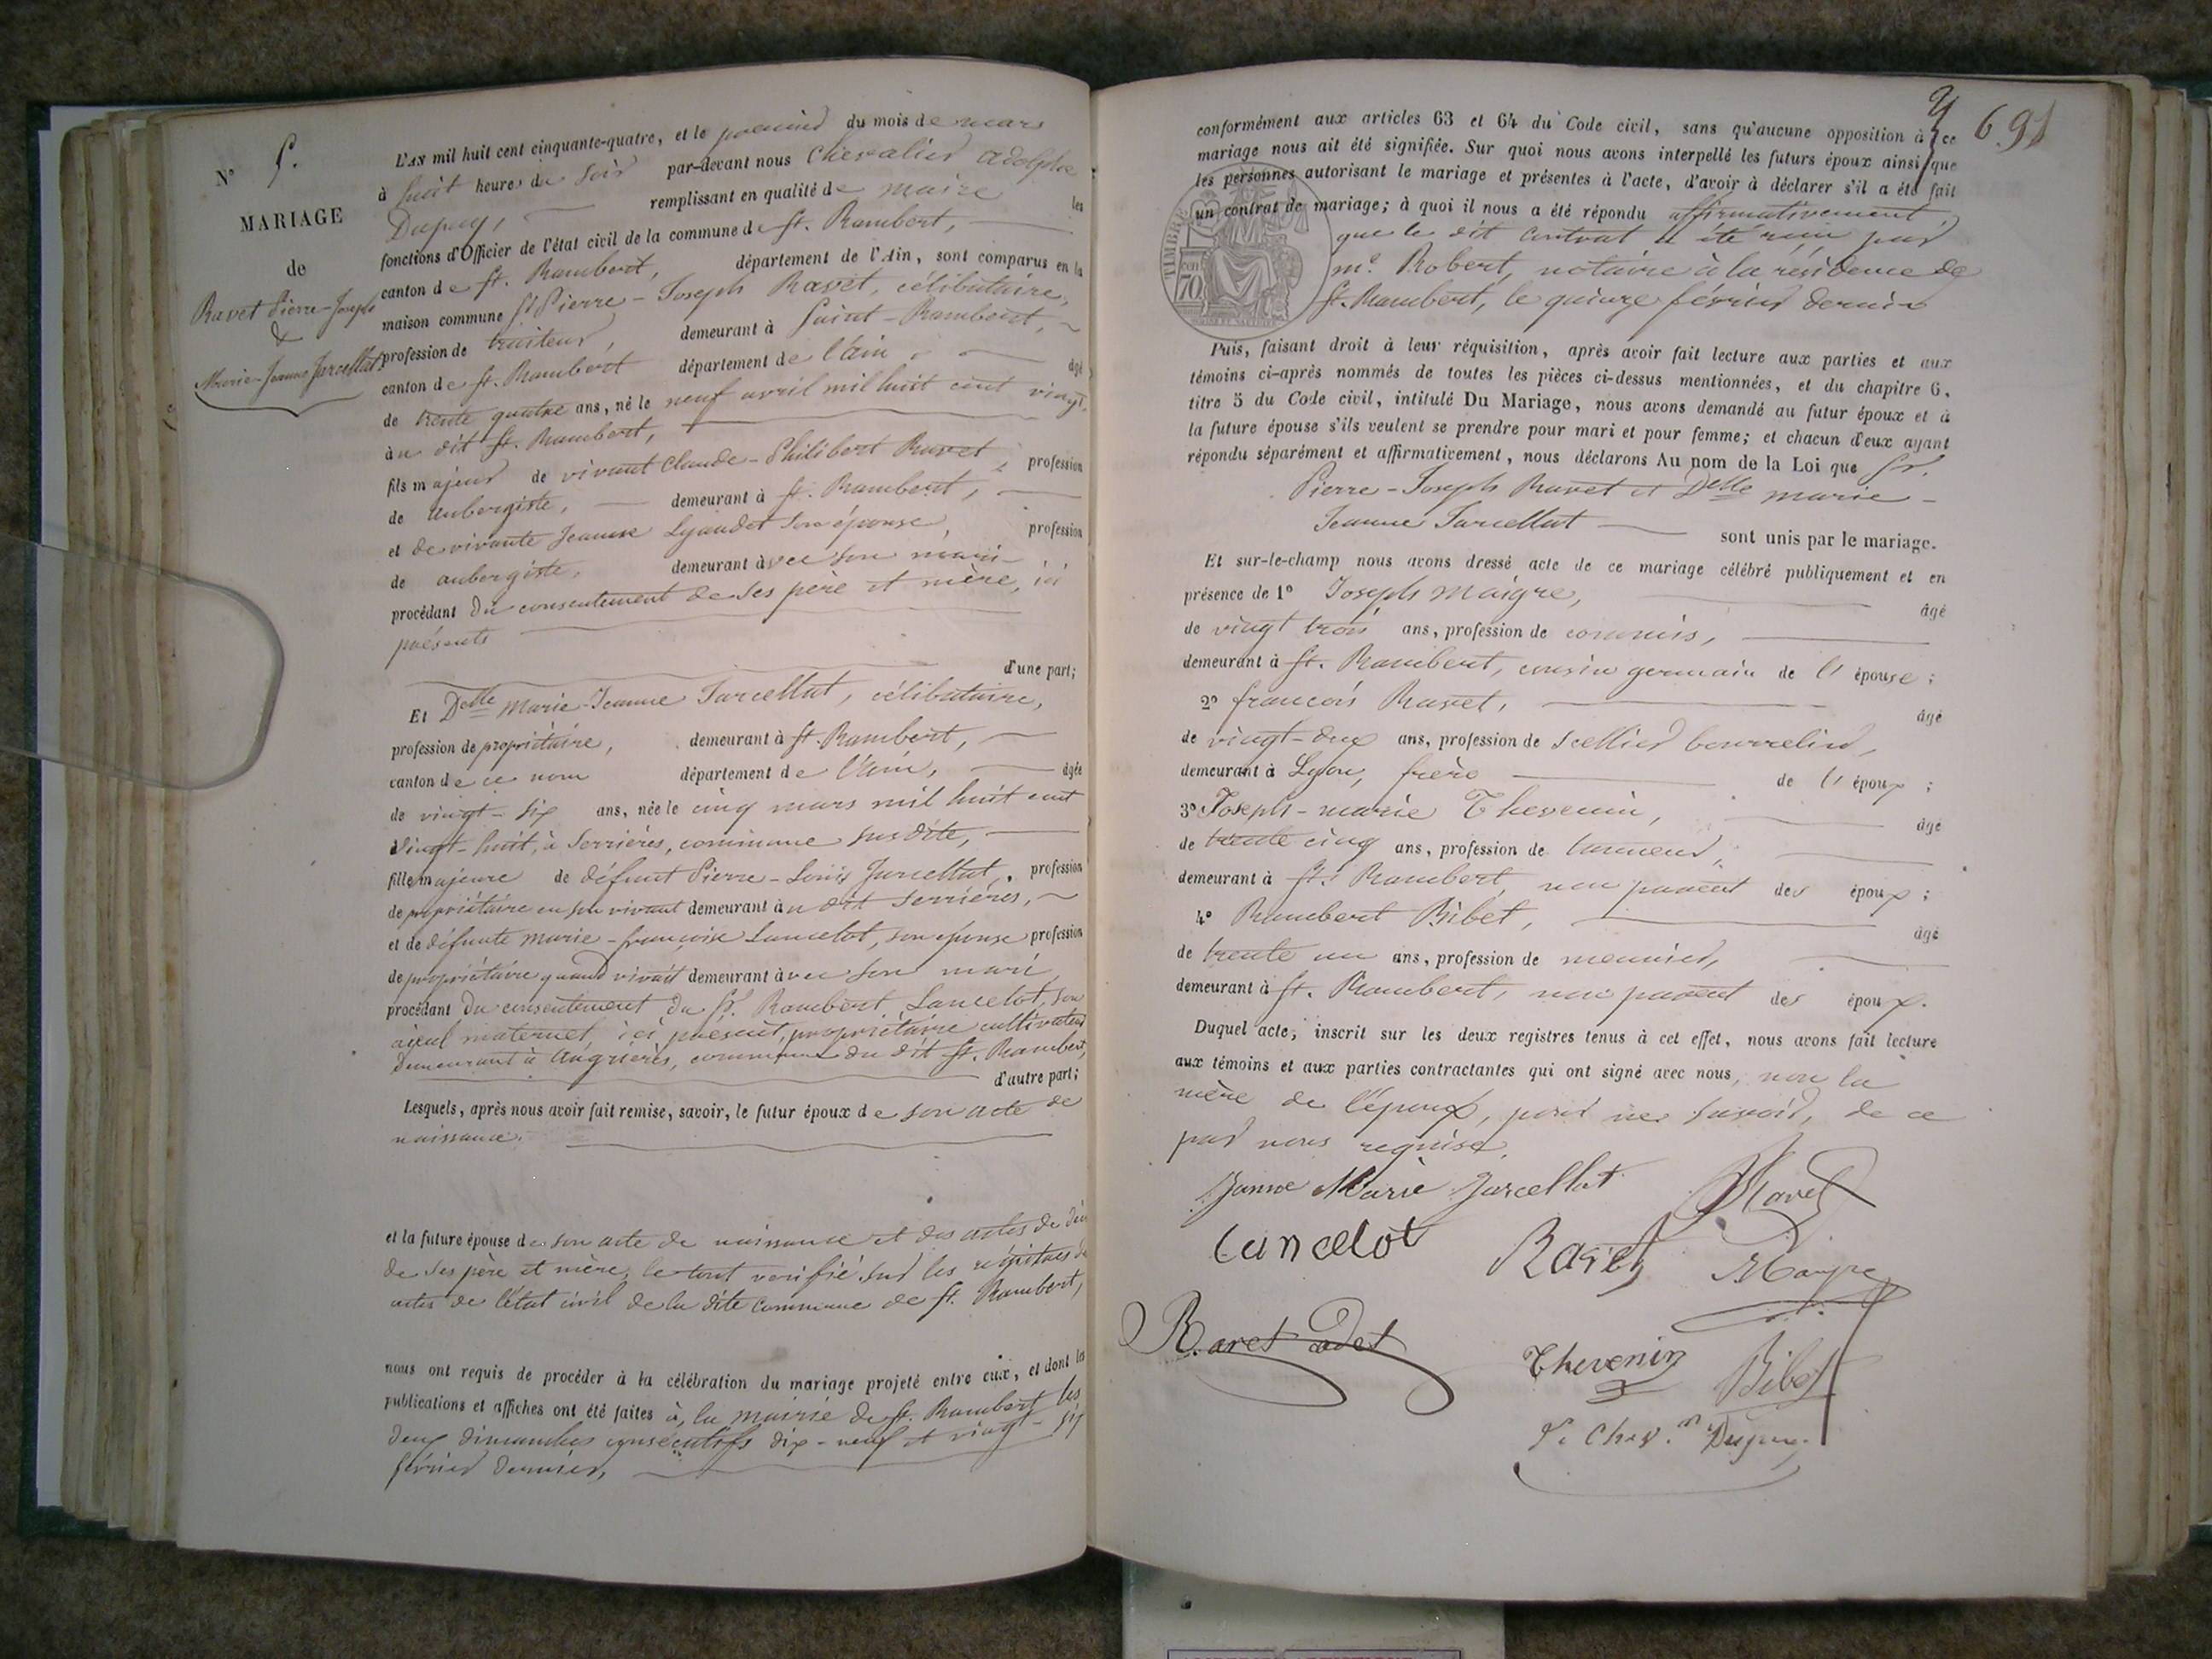 N° 5.
MARIAGE
de
Ravet Pierre-Joseph
&
Marie-Jeanne Jarcellat
L'AN mil huit cent cinquante-quatre, et le premier du mois de mars
à huit heures du soir par-devant nous Chevalier Adolphe
Dupuy, remplissant en qualité de maire les
fonctions d'Officier de l'état civil de la commune de St. Rambert,
canton de St. Rambert, département de l'Ain, sont comparus en la
maison commune Sr Pierre-Joseph Ravet, célibataire,
profession de traiteur, demeurant à Saint-Rambert,
canton de St. Rambert département de l'ain, âgé
de trente quatre ans, né le neuf avril mil huit cent vingt,
au dit St. Rambert,
fils majeur de vivant Claude-Philibert Ravet, profession
de aubergiste, demeurant à St. Rambert,
et de vivante Jeanne Lyaudet son épouse, profession
de aubergiste, demeurant avec son mari
procédant du consentement de ses père et mère, ici
présents
d'une part;
Et Delle Marie-Jeanne Jarcellat, célibataire,
profession de propriétaire, demeurant à St. Rambert,
canton de ce nom département de l'ain, âgée
de vingt-six ans, née le cinq mars mil huit cent
vingt-huit, à Serrières, commune susdite,
fille majeure de défunt Pierre-Louis Jarcellat, profession
de propriétaire en son vivant demeurant au dit Serrières,
et de défunte marie-françoise Lancelot, son épouse profession
de propriétaire quand vivait demeurant avec son mari
procédant du consentement du Sr. Rambert Lancelot, son
aïeul maternel, ici présent, propriétaire cultivateur
demeurant à Angrières, commune du dit St. Rambert,
d'autre part;
Lesquels, après nous avoir fait remise, savoir, le futur époux de son acte de
naissance.
et la future épouse de son acte de naissance et des actes de décès
de ses père et mère, le tout vérifié sur les registres des
actes de l'état civil de la dite commune de St. Rambert,
nous ont requis de procéder à la célébration du mariage projeté entre eux, et dont les
publications et affiches ont été faites à la mairie de St. Rambert les
deux dimanches consécutifs dix-neuf et vingt-six
février dernier,
691
conformément aux articles 63 et 64 du Code civil, sans qu'aucune opposition à ce
mariage nous ait été signifiée. Sur quoi nous avons interpellé les futurs époux ainsi que
les personnes autorisant le mariage et présentes à l'acte, d'avoir à déclarer s'il a été fait
un contrat de mariage; à quoi il nous a été répondu affirmativement,
que le dit contrat a été reçu par
me. Robert, notaire à la résidence de
St. Rambert, le quinze février dernier
TIMBRE
70
Puis, faisant droit à leur réquisition, après avoir fait lecture aux parties et aux
témoins ci-après nommés de toutes les pièces ci-dessus mentionnées, et du chapitre 6,
titre 5 du Code civil, intitulé Du Mariage, nous avons demandé au futur époux et à
la future épouse s'ils veulent se prendre pour mari et pour femme; et chacun d'eux ayant
répondu séparément et affirmativement, nous déclarons Au nom de la Loi que Sr.
Pierre-Joseph Ravet et Delle marie-
Jeanne Jarcellat sont unis par le mariage.
Et sur-le-champ nous avons dressé acte de ce mariage célébré publiquement et en
présence de 1° Joseph Maigre, âgé
de vingt trois ans, profession de commis,
demeurant à St. Rambert, cousin germain de l'épouse;
2° françois Ravet, âgé
de vingt-deux ans, profession de Sellier bourrelier,
demeurant à Lyon, frère de l'époux;
3° Joseph-marie Thevenin, âgé
de trente cinq ans, profession de tanneur,
demeurant à St. Rambert, non parent des époux;
4° Rambert Bibet, âgé
de trente un ans, profession de meunier,
demeurant à St. Rambert, non parent des époux.
Duquel acte, inscrit sur les deux registres tenus à cet effet, nous avons fait lecture
aux témoins et aux parties contractantes qui ont signé avec nous, non la
mère de l'époux, pour ne savoir, de ce
par nous requise.
Janne Marie Jarcellat Ravet
Lancelot Ravet
Ravet cadet
Thevenin Bibet
Dupuy